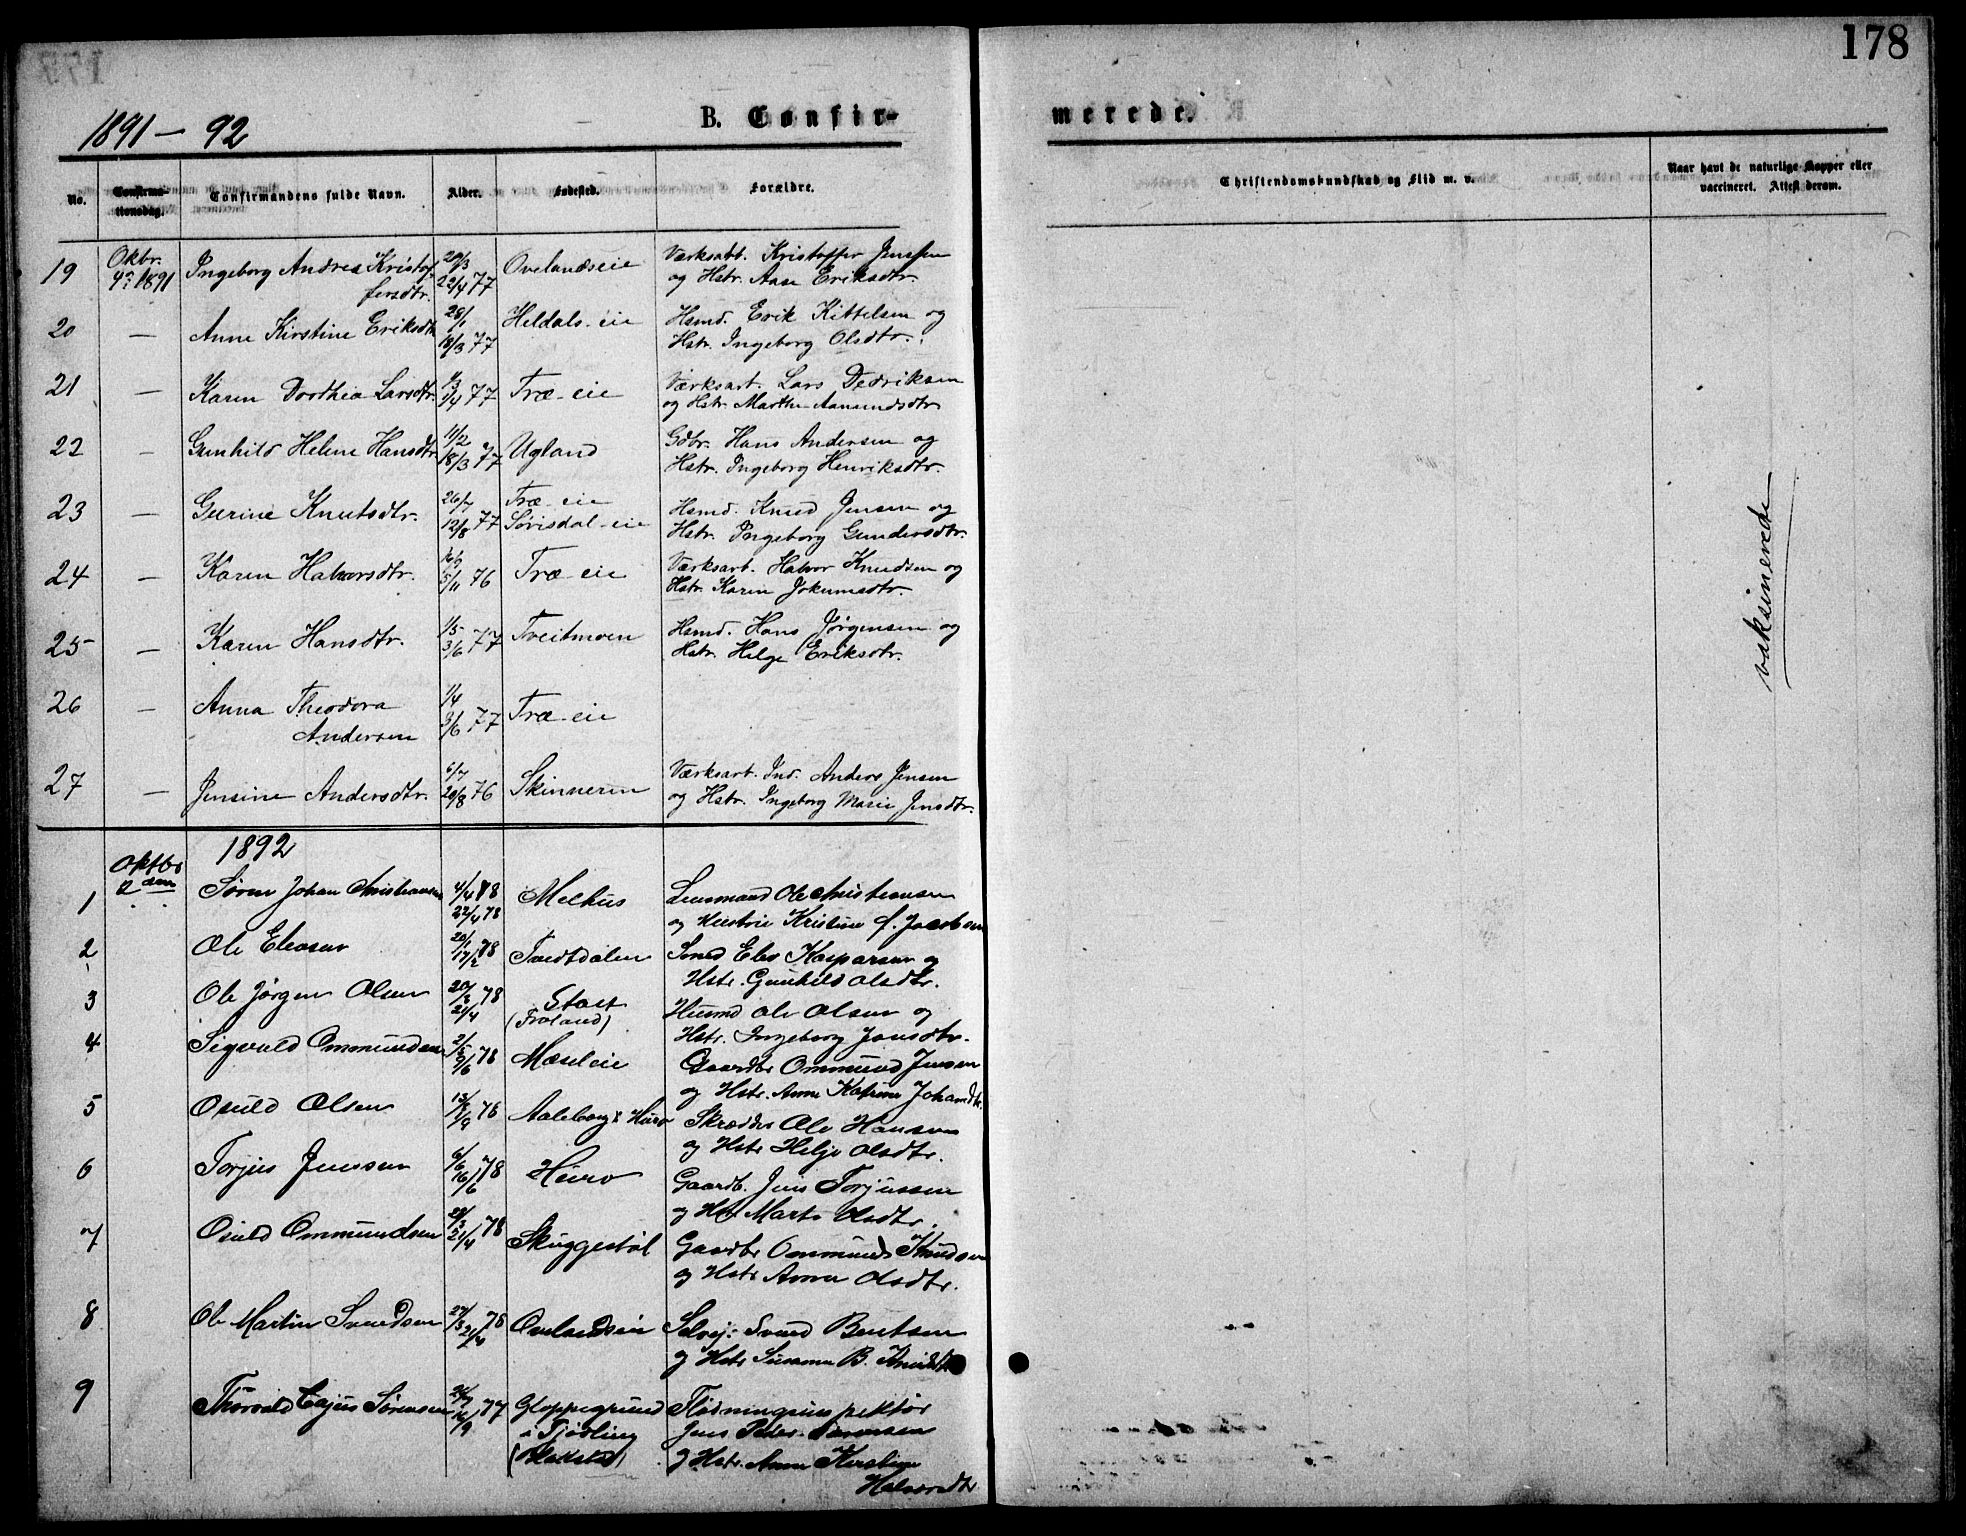 178
1891 - 92
B. Confir-
merede.
No.
Confirma-
tionsdag.
Confirmandens fulde Navn.
Alder.
Fødested.
Forældre.
Christendomskundskab og Flid m. v.
Naar havt de naturlige Kopper eller
vaccineret. Attest derom.
19 Oktbr. Ingeborg Andrea Kristof- 20/3 Ovelandseie Værksarb. Kristoffer Jensen
1891 fersdtr. 22/4 77 og Hstr. Aase Eriksdtr.
20 — Anne Kirstine Eriksdtr. 28/1 Heldals-eie Hsmd. Erik Kittelsen og
18/3 77 Hstr. Ingeborg Olsdtr.
21 — Karen Dorthea Larsdtr. 1/3 Træ-eie Værksarb. Lars Dedriksen
1/4 77 og Hstr. Marthe Aanundsdtr.
22 — Gunhild Helene Hansdtr. 11/2 Ugland Gdbr. Hans Andersen og
18/3 77 Hstr. Ingeborg Henriksdtr.
23 — Gurine Knutsdtr. 26/7 Træ-eie Hsmd. Knud Jensen og
12/8 77 Sørisdal-eie Hstr. Ingeborg Gundersdtr.
24 — Karen Halvorsdtr. Træ-eie Værksarb. Halvor Knudsen og
5/11 76 Hstr. Karen Jokumsdtr.
25 — Karen Hansdtr. 1/5 Tveitmoen Hsmd. Hans Jørgensen og
3/6 77 Hstr. Helge Eriksdtr.
26 — Anna Theodora 1/4 Træ-eie
Andersen 3/6 77
27 — Jensine Andersdtr. 6/7 Skinneren Værksarb. Ind. Anders Jensen
20/8 76 og Hstr. Ingeborg Marie Jensdtr.
vaksinerede
1892
Oktbr
2den
1 Søren Johan Christiansen 4/4 78 Melhus Lensmand Ole Christiansen
22/4 78 og Hustru Kristine f. Jacobsen
2 Ole Eleasen 20/1 78 Tveitdalen Smed Elev Kasparsen og
17/2 Hstr. Gunhild Olsdtr.
3 Ole Jørgen Olsen 20/3 78 Stast Husmd Ole Olsen og
21/4 (Froland) Hstr. Ingeborg Jensdtr.
4 Sigvald Ommundsen 2/5 78 Mæsel eie Gaardbr Ommund Jensen
9/6 og Hstr. Anne Katrine Johansdtr.
5 Osuld Olsen 13/8 78 Aaleborg x Heiro Skrædder Ole Hansen
1/9 og Hstr Helje Olsdtr.
6 Torjus Jenssen 6/6 78 Heiro Gaardb. Jens Torjussen
16/6 og Hstr Marte Olsdtr.
7 Osuld Ommundsen 78 Skuggestøl Gaardbr Ommund Knudsen
21/4 og Hstr Anne Olsdtr.
8 Ole Martin Svendsen 27/3 78 Ovelandseie Selvej: Svend Bentsen
21/4 og Hstr Susanne B.
9 Thorvald Cajus Sørensen 77 Gloppegrund Flødningsinspektør
16/9 i Fjødling Jens Peder Sørensen
(Blakstad) og Hstr. Anne Kirstine
Halvorsdtr